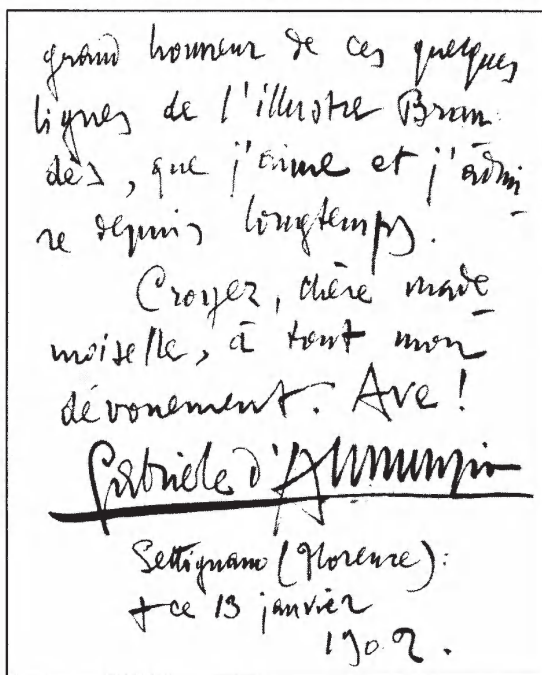 grand honneur de ces quelques
lignes de l'illustre Bran
dès, que j'aime et j'admi
re depuis longtemps.
Croyez, chère made
moiselle, à tout mon
dévouement. Ave!
Gabriele d'Annunzio
Settignano (Florence):
+ ce 13 janvier
1902.